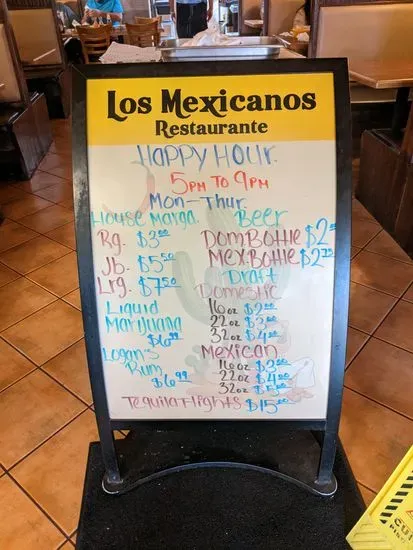 Los Mexicanos
Restaurante
Happy Hour
5PM TO 9PM
Mon-Thur.
House Marga.
Rg. $3.00
Jb. $5.50
Lrg. $7.50
Liquid
Marijuana
$6.99
Logan's
Rum
$6.99
Beer
Dom Bottle $2.50
Mex Bottle $2.75
Draft
Domestic
16oz $2.00
22oz $3.00
32oz $4.00
Mexican
16oz $3.00
22oz $4.00
32oz $5.00
Tequila Flights $15.00